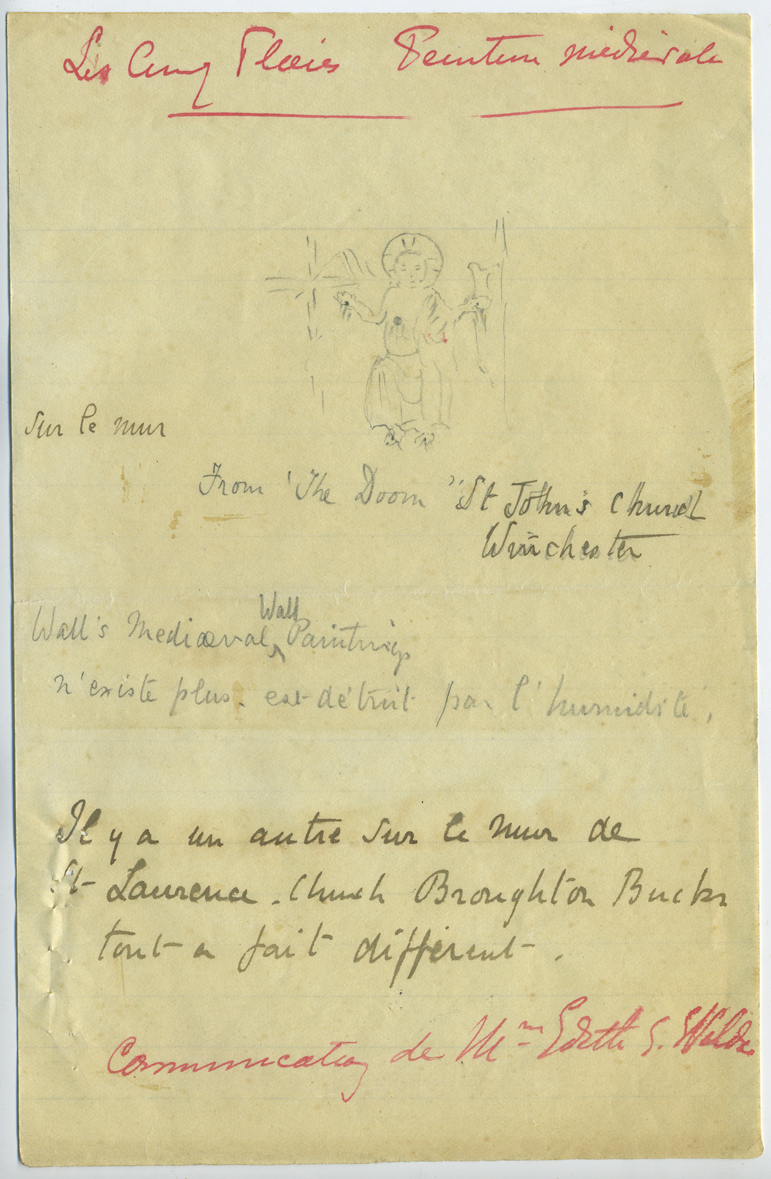 Les Cinq Plaies Peinture médiévale
sur le mur
From 'The Doom" St John's Church
Winchester
Wall's Mediæval Wall Paintings
n'existe plus. est détruit par l'humidité,
Il y a un autre sur le mur de
St Laurence. Church Broughton Bucks
tout a fait différent.
Communication de Mme Edith G.